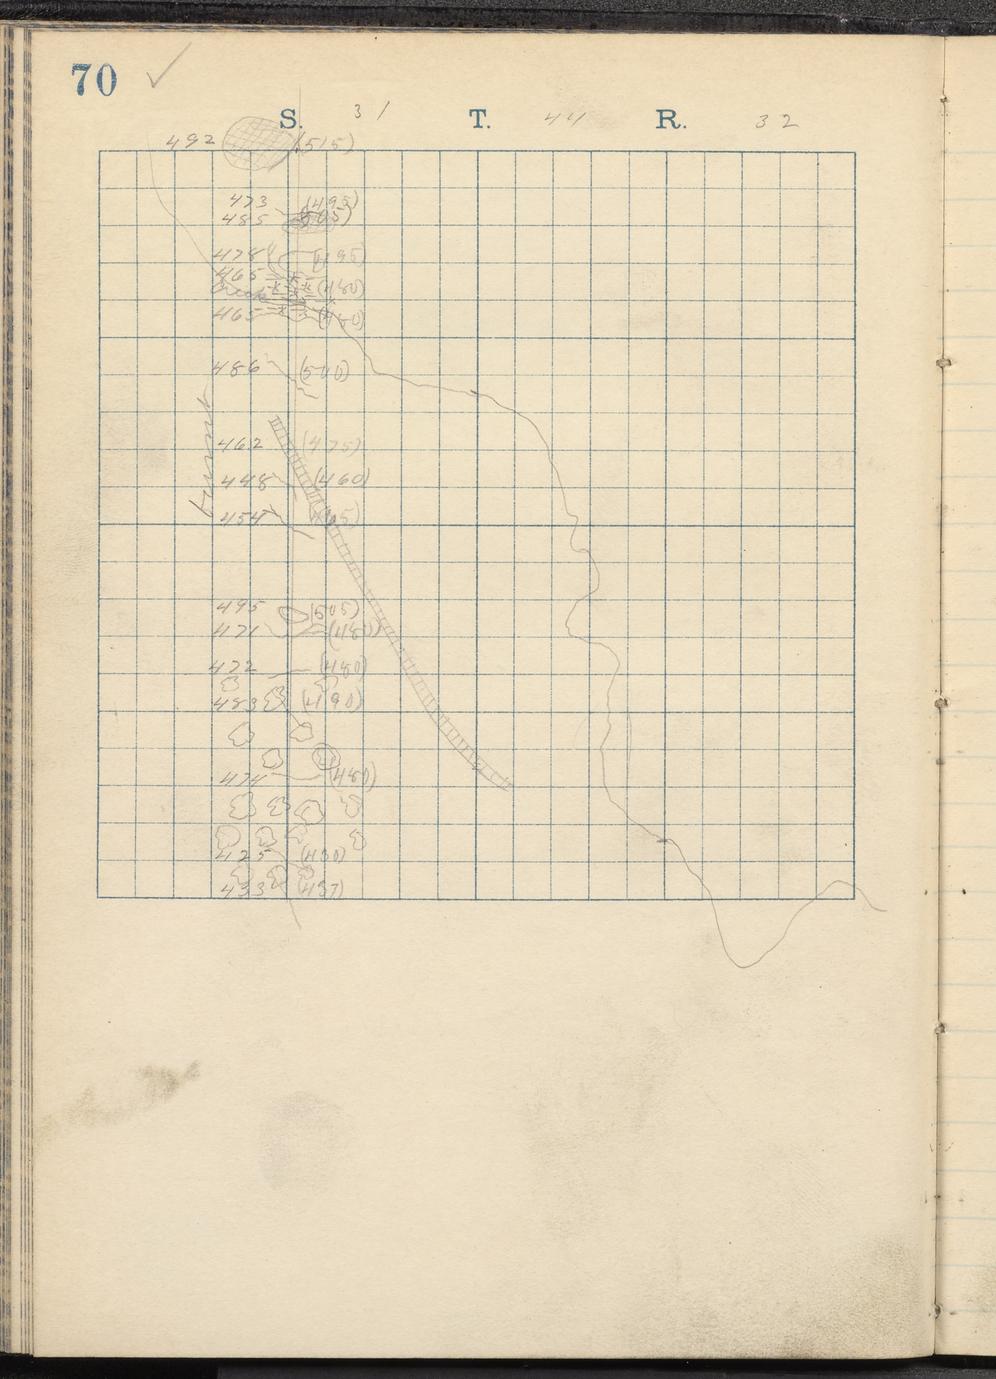 70
S. 31 T. 44 R. 32
492 (515)
473 (495)
485 (505)
478 (495)
465 (480)
Creek
465 (480)
486 (500)
462 (475)
448 (460)
454
495 (505)
471 (480)
472 (480)
483 (490)
474 (480)
425 (430)
433 (437)